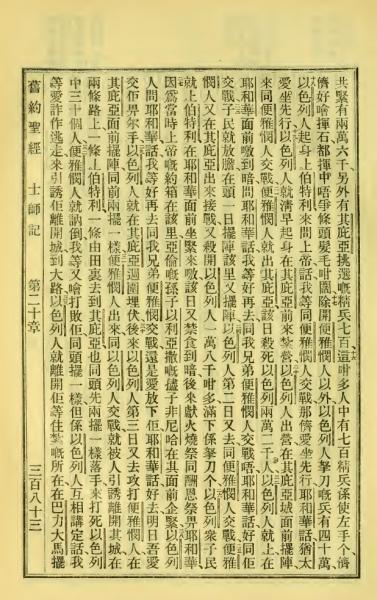 共緊有兩萬六千、另外有其庇亞挑選嘅精兵七百、這咁多人中有七百精兵係使左手个、儕
儕好嗆揮石、都揮中唔爭條頭髮毛咁、除開便雅憫人以外、以色列人拏刀嘅兵有四十萬、
以色列人起身上伯特利來問上帝話、我等同便雅憫人交戰、那儕愛坐先行、耶和華話、猶太
愛坐先行、以色列人就清早起身、在其庇亞面前來紮營、以色列人出營在其庇亞城面前擺陣、
來同便雅憫人交戰、便雅憫人就出其庇亞、該日殺死以色列兩萬二千人、以色列人就上在
耶和華面前噭到暗、問耶和華話、我等好再去同我兄弟便雅憫交戰唔、耶和華話、好同佢
交戰、子民就放膽在頭一日擺陣該里又擺陣、以色列人第二日又去同便雅憫人交戰、便雅
憫人又在其庇亞出來接戰、又殺開以色列人一萬八千咁多、滿下係拏刀个、以色列衆子民
就上伯特利、在耶和華面前坐緊來噭、該日又禁食到暗、後來獻火燒祭同酬恩祭畀耶和華、
因爲當時上帝嘅約箱在該里、亞倫嘅孫子以利亞撒嘅儘子非尼哈在其面前企緊、以色列
人問耶和華話、我等好再去同我兄弟便雅憫交戰、還是愛放下佢、耶和華話、好去、明日吾愛
交佢畀尔手、以色列人就在其庇亞週圍埋伏、後來以色列人第三日又去攻打便雅憫人、在
其庇亞面前擺陣、同前兩擺一樣、便雅憫人出來同以色列人交戰、就被人引誘離開其城、在
兩條路上、一條上伯特利、一條由田裏去到其庇亞、也同頭先兩擺一樣、落手來打死以色列
中三十個人、便雅憫人就訥倒我等又嗆打敗佢、同頭擺一樣、但係以色列人互相講定話、我
等愛詐作逃走、來引誘佢離開城到大路、以色列人就離開佢等住紮嘅所在、在巴力大馬擺
舊約聖經 士師記 第二十章 三百八十三